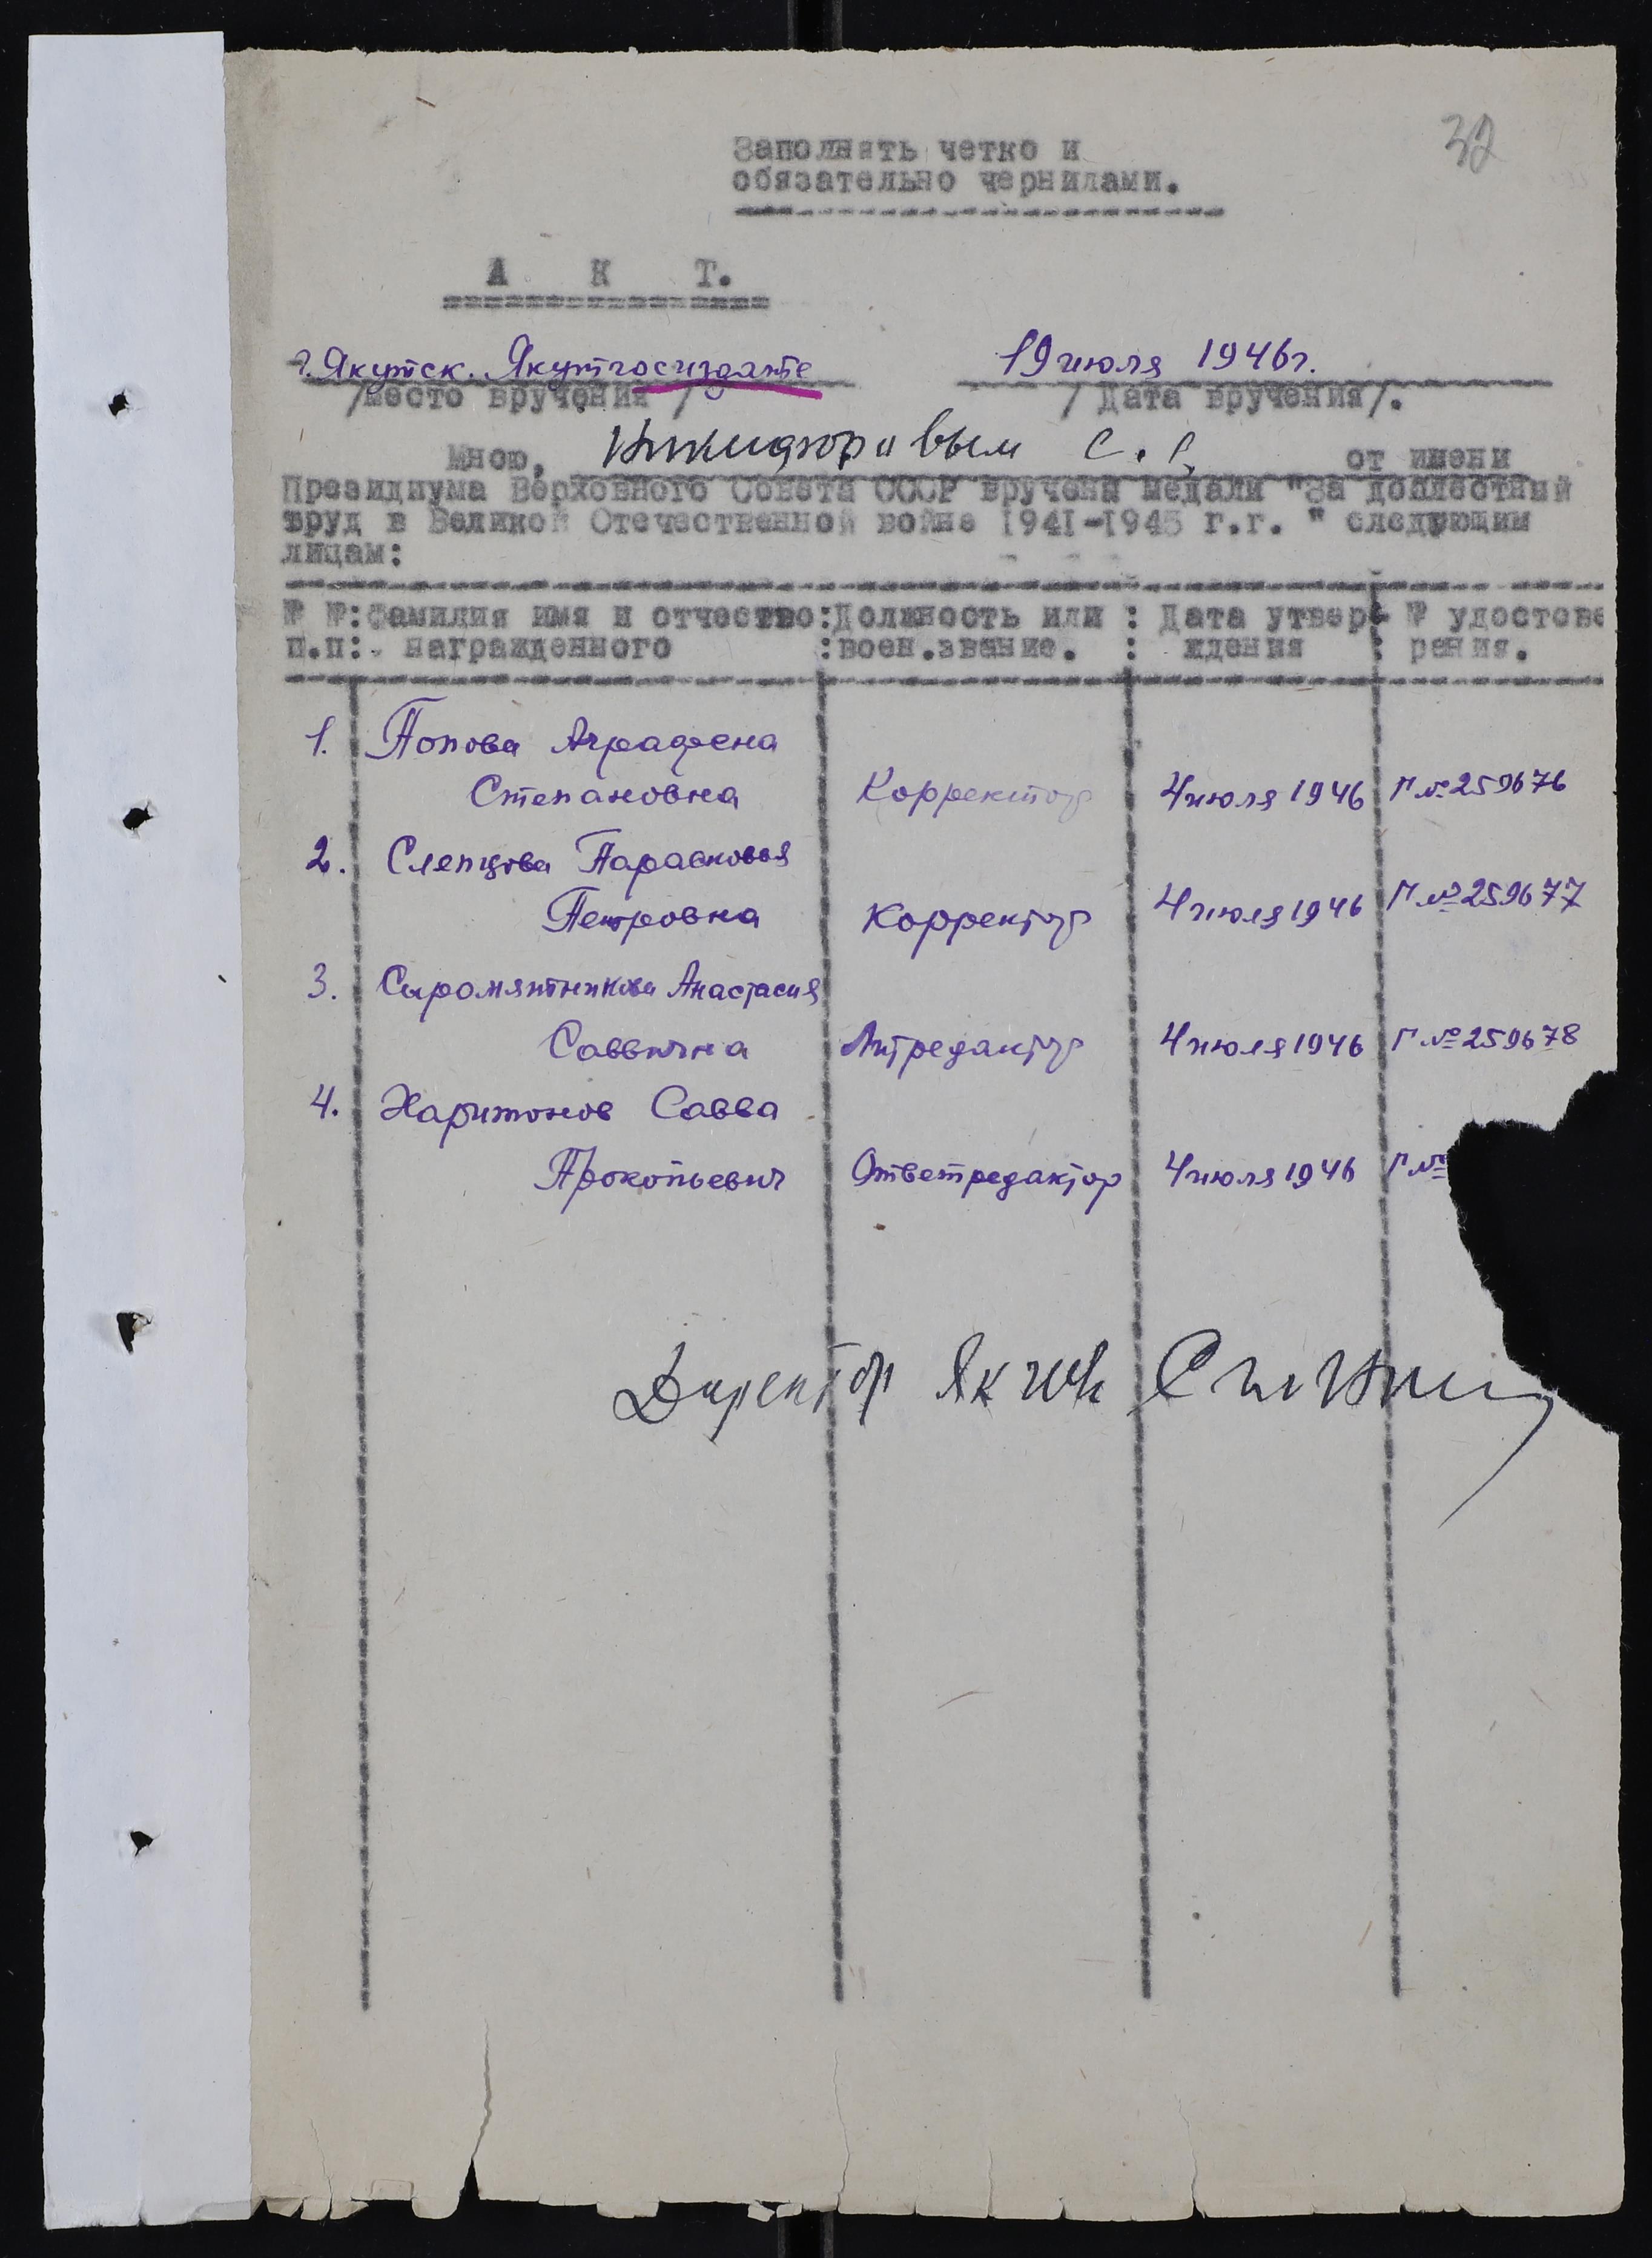 32
Заполнять четко и
обязательно чернилами.
А К Т.
г. Якутск. Якутгосиздате 19 июля 1946г.
/место вручения / / Дата вручения/.
Мною, Никифоровым С. С. от имени
Президиума Верховного Совета СССР вручены медали "За доплестный
труд в Великой Отечественной войне 1941-1945 г.г. " следующим
лицам:
№ №:Фамилия имя и отчество:Должность или : Дата утвер- № удостове
п.п: награжденного :воен.звание. : ждения : рения.
1. Попова Аграфена
Степановна Корректор 4 июля 1946 Г № 259676
2. Слепцова Парасковья
Петровна Корректор 4 июля 1946 Г № 259677
3. Сыромятникова Анастасия
Саввична Литредактор 4 июля 1946 Г № 259678
4. Харитонов Савва
Прокопьевич Ответредактор 4 июля 1946 Г №
Директор